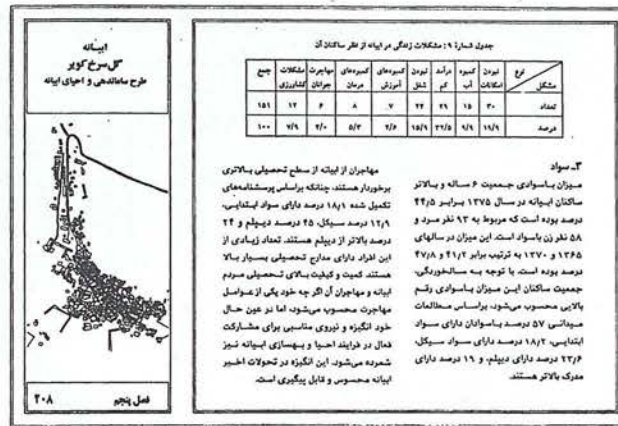 ابیانه
گل سرخ کویر
طرح ساماندهی و احیای ابیانه
فصل پنجم
۲۰۸
جدول شمارهٔ ۹ : مشکلات زندگی در ابیانه از نظر ساکنان آن
نوع مشکل نبودن امکانات کمبود آب درآمد کم نبودن شغل کمبودهای آموزش کمبودهای درمان مهاجرت جوانان مشکلات کشاورزی جمع
تعداد ۳۰ ۱۵ ۴۹ ۲۴ ۷ ۸ ۶ ۱۲ ۱۵۱
درصد ۱۹/۹ ۹/۹ ۳۲/۵ ۱۵/۹ ۴/۶ ۵/۳ ۴/۰ ۷/۹ ۱۰۰
۳ـ سواد
میزان باسوادی جمعیت ۶ ساله و بالاتر
ساکنان ابیانه در سال ۱۳۷۵ برابر ۴۴/۵
درصد بوده است که مربوط به ۹۳ نفر مرد و
۵۸ نفر زن باسواد است. این میزان در سالهای
۱۳۶۵ و ۱۳۷۰ به ترتیب برابر ۴۱/۲ و ۴۷/۸
درصد بوده است. با توجه به سالخوردگی،
جمعیت ساکنان این میزان باسوادی رقم
بالایی محسوب می‌شود. براساس مطالعات
میدانی ۵۷ درصد باسوادان دارای سواد
ابتدایی، ۱۸/۲ درصد دارای سواد سیکل،
۲۳/۶ درصد دارای دیپلم، و ۱۹ درصد دارای
مدرک بالاتر هستند.
مهاجران از ابیانه از سطح تحصیلی بالاتری
برخوردار هستند، چنانکه براساس پرسشنامه‌های
تکمیل شده ۱۸٫۱ درصد دارای سواد ابتدایی،
۱۲٫۹ درصد سیکل، ۴۵ درصد دیپلم و ۲۴
درصد بالاتر از دیپلم هستند. تعداد زیادی از
این افراد دارای مدارج تحصیلی بسیار بالا
هستند. کمیت و کیفیت بالای تحصیلی مردم
ابیانه و مهاجران آن اگر چه خود یکی از عوامل
مهاجرت محسوب می‌شود، اما در عین حال
خود انگیزه و نیروی مناسبی برای مشارکت
فعال در فرایند احیا و بهسازی ابیانه نیز
شمرده می‌شود. این انگیزه در تحولات اخیر
ابیانه محسوس و قابل پیگیری است.